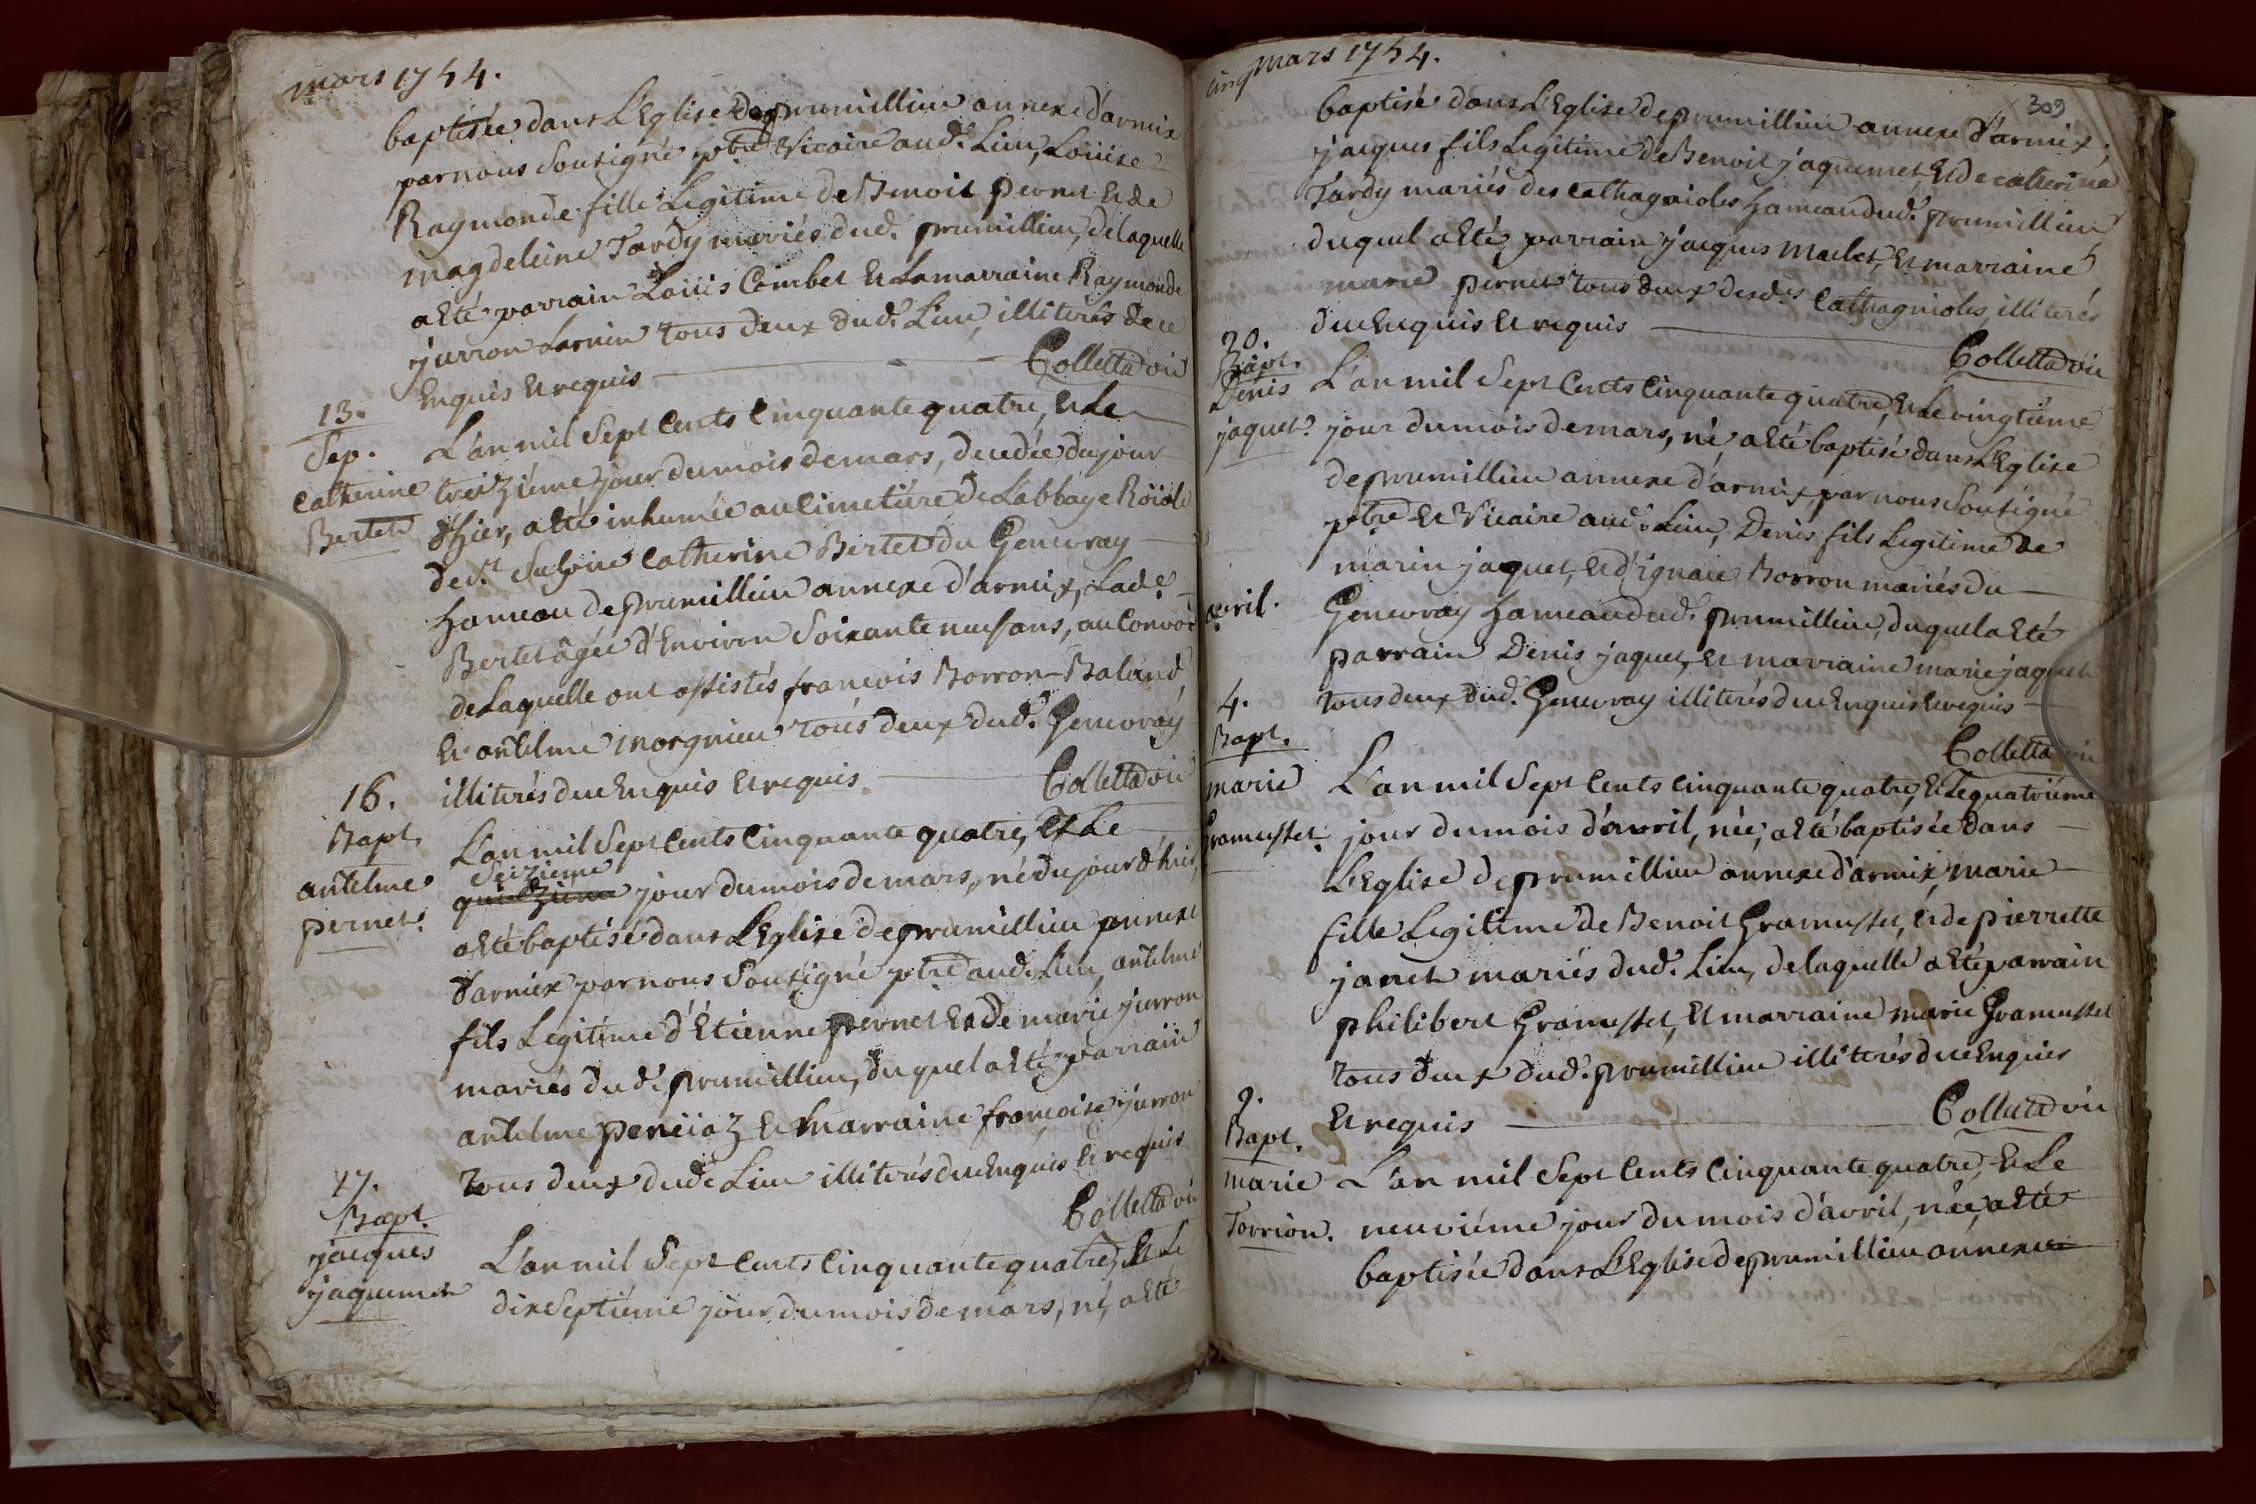 mars 1754.
baptisée dans L'Eglise de prumillieu annexe d'armix
par nous Soussigné ptre Vicaire aud. Lieu, Loüise
Raymonde fille Legitime de Benoit pernet et de
magdeleine Tardy mariés dud. prumillieu, de laquelle
a été parrain Loüis Combet et La marraine Raymonde
jurron Larnin tous deux dud. Lieu, illiterés de ce
Enquis et requis
Colletta vic
13.
Sep.
catherine
Bertet
L'an mil Sept Cents Cinquante quatre, et Le
treizième jour du mois de mars, decedée du jour
d'hier, a été inhumée au Cimetière de L'abbaye Roïale
de St Sulpice Catherine Bertet du Genevray
hameau de prumillieu annexe d'armix, Lade
Bertet âgée d'Environ Soixante neuf ans, au Convoi
de Laquelle ont assistés francois Borron-Baland
et antelme morgnieu tous deux dud. Genevray
illiterés de ce Enquis et requis.
Colletta vic
16.
Bapt.
antelme
pernet.
L'an mil Sept Cents Cinquante quatre, et Le
Seizieme
quinzieme jour du mois de mars, né du jour d'hier,
a été baptisé dans L'Eglise de prumillieu annexe
d'armix par nous Soussigné ptre aud. Lieu, antelme
fils Legitime d'Etienne pernet et de marie jurron
mariés dud. prumillieu, duquel a été parrain
antelme pereiaz et Marraine francoise jurron
tous deux dud. Lieu illiterés de ce Enquis et requis
Colletta vic
17.
Bapt.
jacques
jaquemet
L'an mil Sept Cents Cinquante quatre, et Le
dix Septième jour du mois de mars, né, a été
cinq mars 1754.
309
baptisé dans L'Eglise de prumillieu annexe d'armix,
jacques fils Legitime de Benoit jaquemet, et de catherine
Tardy mariés des cathagnioles hameau dud. prumillieu
duquel a été parrain jacques Maclet, et marraine
marie pernet tous deux desd. Cathagnioles, illiterés
de ce Enquis et requis
Colletta vic
20.
Bapt.
Denis
jaquet.
L'an mil Sept Cents Cinquante quatre, et Le vingtième
jour du mois de mars, né, a été baptisé dans L'Eglise
de prumillieu annexe d'armix, par nous Soussigné
ptre et Vicaire aud. Lieu, Denis fils Legitime de
marin jaquet, et d'ignace Borron mariés du
Genevray hameau dud. prumillieu, duquel a été
parrain Denis jaquet, et marraine marie jaquet
tous deux dud. Genevray illiterés de ce Enquis et requis
Colletta vic
avril.
4.
Bapt.
marie
Gramusset.
L'an mil Sept Cents Cinquante quatre, et Le quatrième
jour du mois d'avril, née, a été baptisée dans
L'Eglise de prumillieu annexe d'armix, marie
fille Legitime de Benoit Gramusset, et de pierrette
janet mariés dud. Lieu, de laquelle a été parrain
philibert Gramusset, et marraine marie Gramusset
tous deux dud. prumillieu illiterés de ce Enquis
et requis
Colletta vic
9.
Bapt.
marie
Torrion.
L'an mil Sept Cents Cinquante quatre, et Le
neuvième jour du mois d'avril, née, a été
baptisée dans L'Eglise de prumillieu annexe